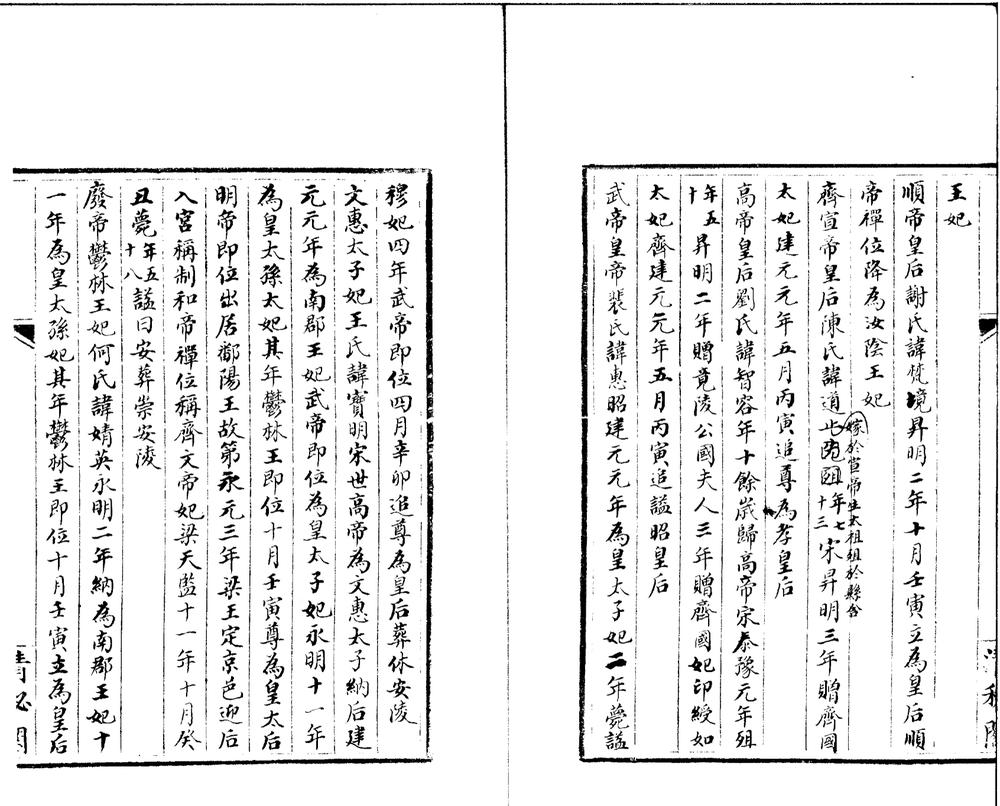 王妃
順帝皇后謝氏諱梵境昇明二年十月壬寅立為皇后順
帝禪位降為汝陰王妃
齊宣帝皇后陳氏諱道止嫁於宣帝生太祖殂於縣舍年七十三宋昇明三年贈齊國
太妃建元元年五月丙寅追尊為孝皇后
高帝皇后劉氏諱智容年十餘歲歸高帝宋泰豫元年殂
年五十昇明二年贈竟陵公國夫人三年贈齊國妃印綬如
太妃齊建元元年五月丙寅追謚昭皇后
武帝皇帝裴氏諱惠昭建元元年為皇太子妃二年薨謚
穆妃四年武帝即位四月辛卯追尊為皇后葬休安陵
文惠太子妃王氏諱寶明宋世高帝為文惠太子納后建
元元年為南郡王妃武帝即位為皇太子妃永明十一年
為皇太孫太妃其年鬱林王即位十月壬寅尊為皇太后
明帝即位出居鄱陽王故第永元三年梁王定京邑迎后
入宮稱制和帝禪位稱齊文帝妃梁天監十一年十月癸
丑薨年五十八謚曰安葬崇安陵
廢帝鬱林王妃何氏諱婧英永明二年納為南郡王妃十
一年為皇太孫妃其年鬱林王即位十月壬寅立為皇后